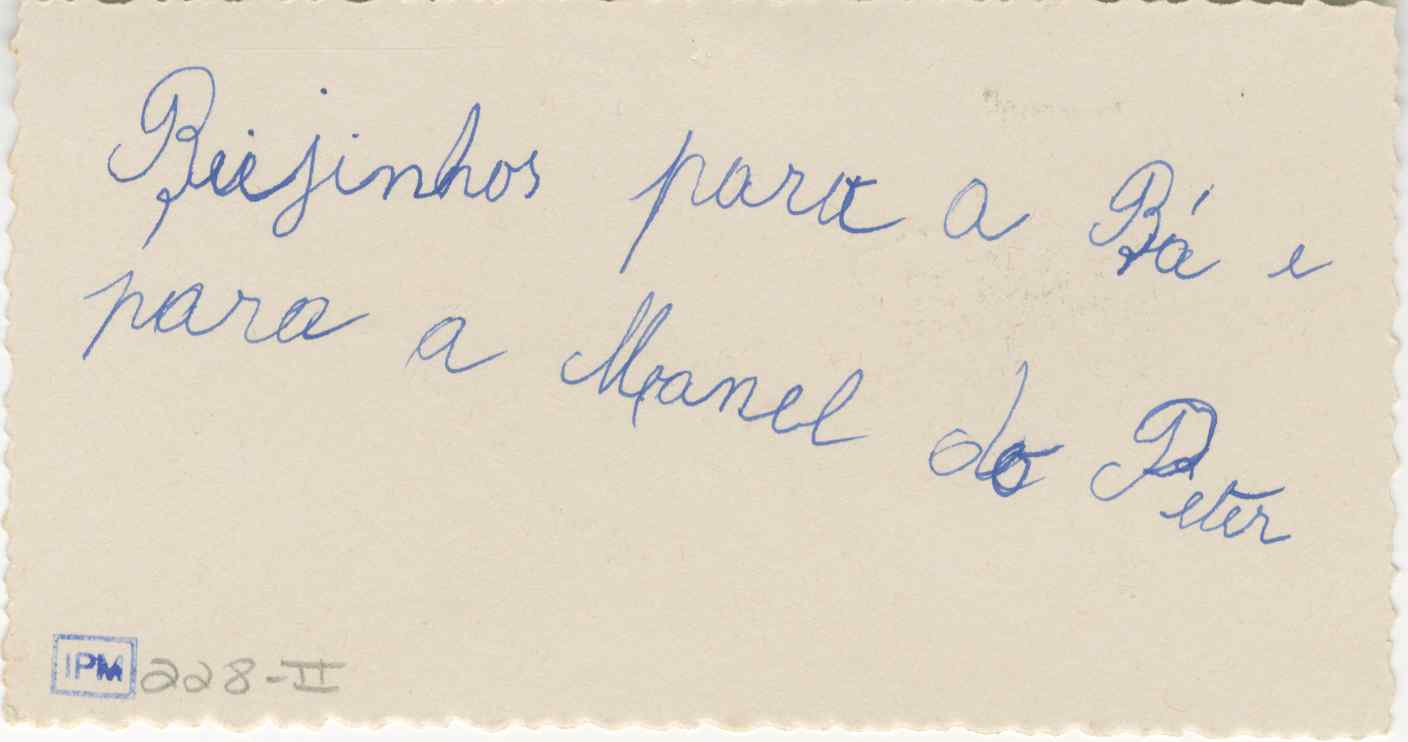 Beijinhos para a Bá e
para a Manel do Peter
IPM 228-II